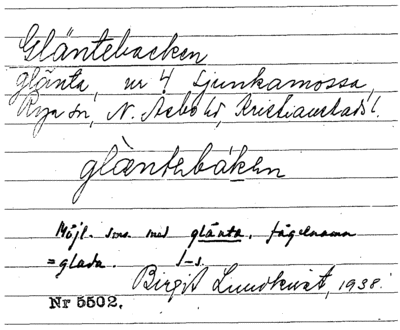 Gläntebacken
glänta, nr 4 Ljunkamossa,
Rya sn, N. Åsbo hd, Kristianstads l.
glàntəbáken
Möjl. sms. med glänta, fågelnamn
= glada. l-s.
Birgit Lundkvist, 1938.
Nr 5502.